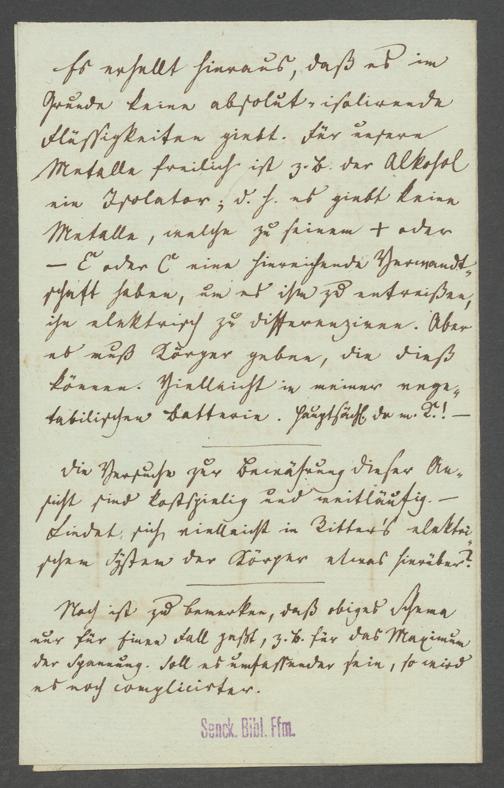 Es erhellt hieraus, daß es im
Grunde keine absolut-isolirende
Flüssigkeiten giebt. Für unsere
Metalle freilich ist z. B. der Alkohol
ein Isolator; d. h. es giebt keine
Metalle, welche zu seinem + oder
— E oder C eine hinreichende Verwandt-
schaft haben, um es ihm zu entreißen,
ihn elektrisch zu differenziren. Aber
es muß Körper geben, die dieß
können. Vielleicht in meiner vege-
tabilischen Batterie. Hauptsächl. da m. K.! —
Die Versuche zur Bewährung dieser An-
sicht sind kostspielig und weitläufig. —
Findet sich vielleicht in Ritter's elektri-
schem System der Körper etwas hierüber?
Noch ist zu bemerken, daß obiges Schema
nur für Einen Fall paßt, z. B. für das Maximum
der Spannung. Soll es umfassender sein, so wird
es noch complicirter.
Senck. Bibl. Ffm.